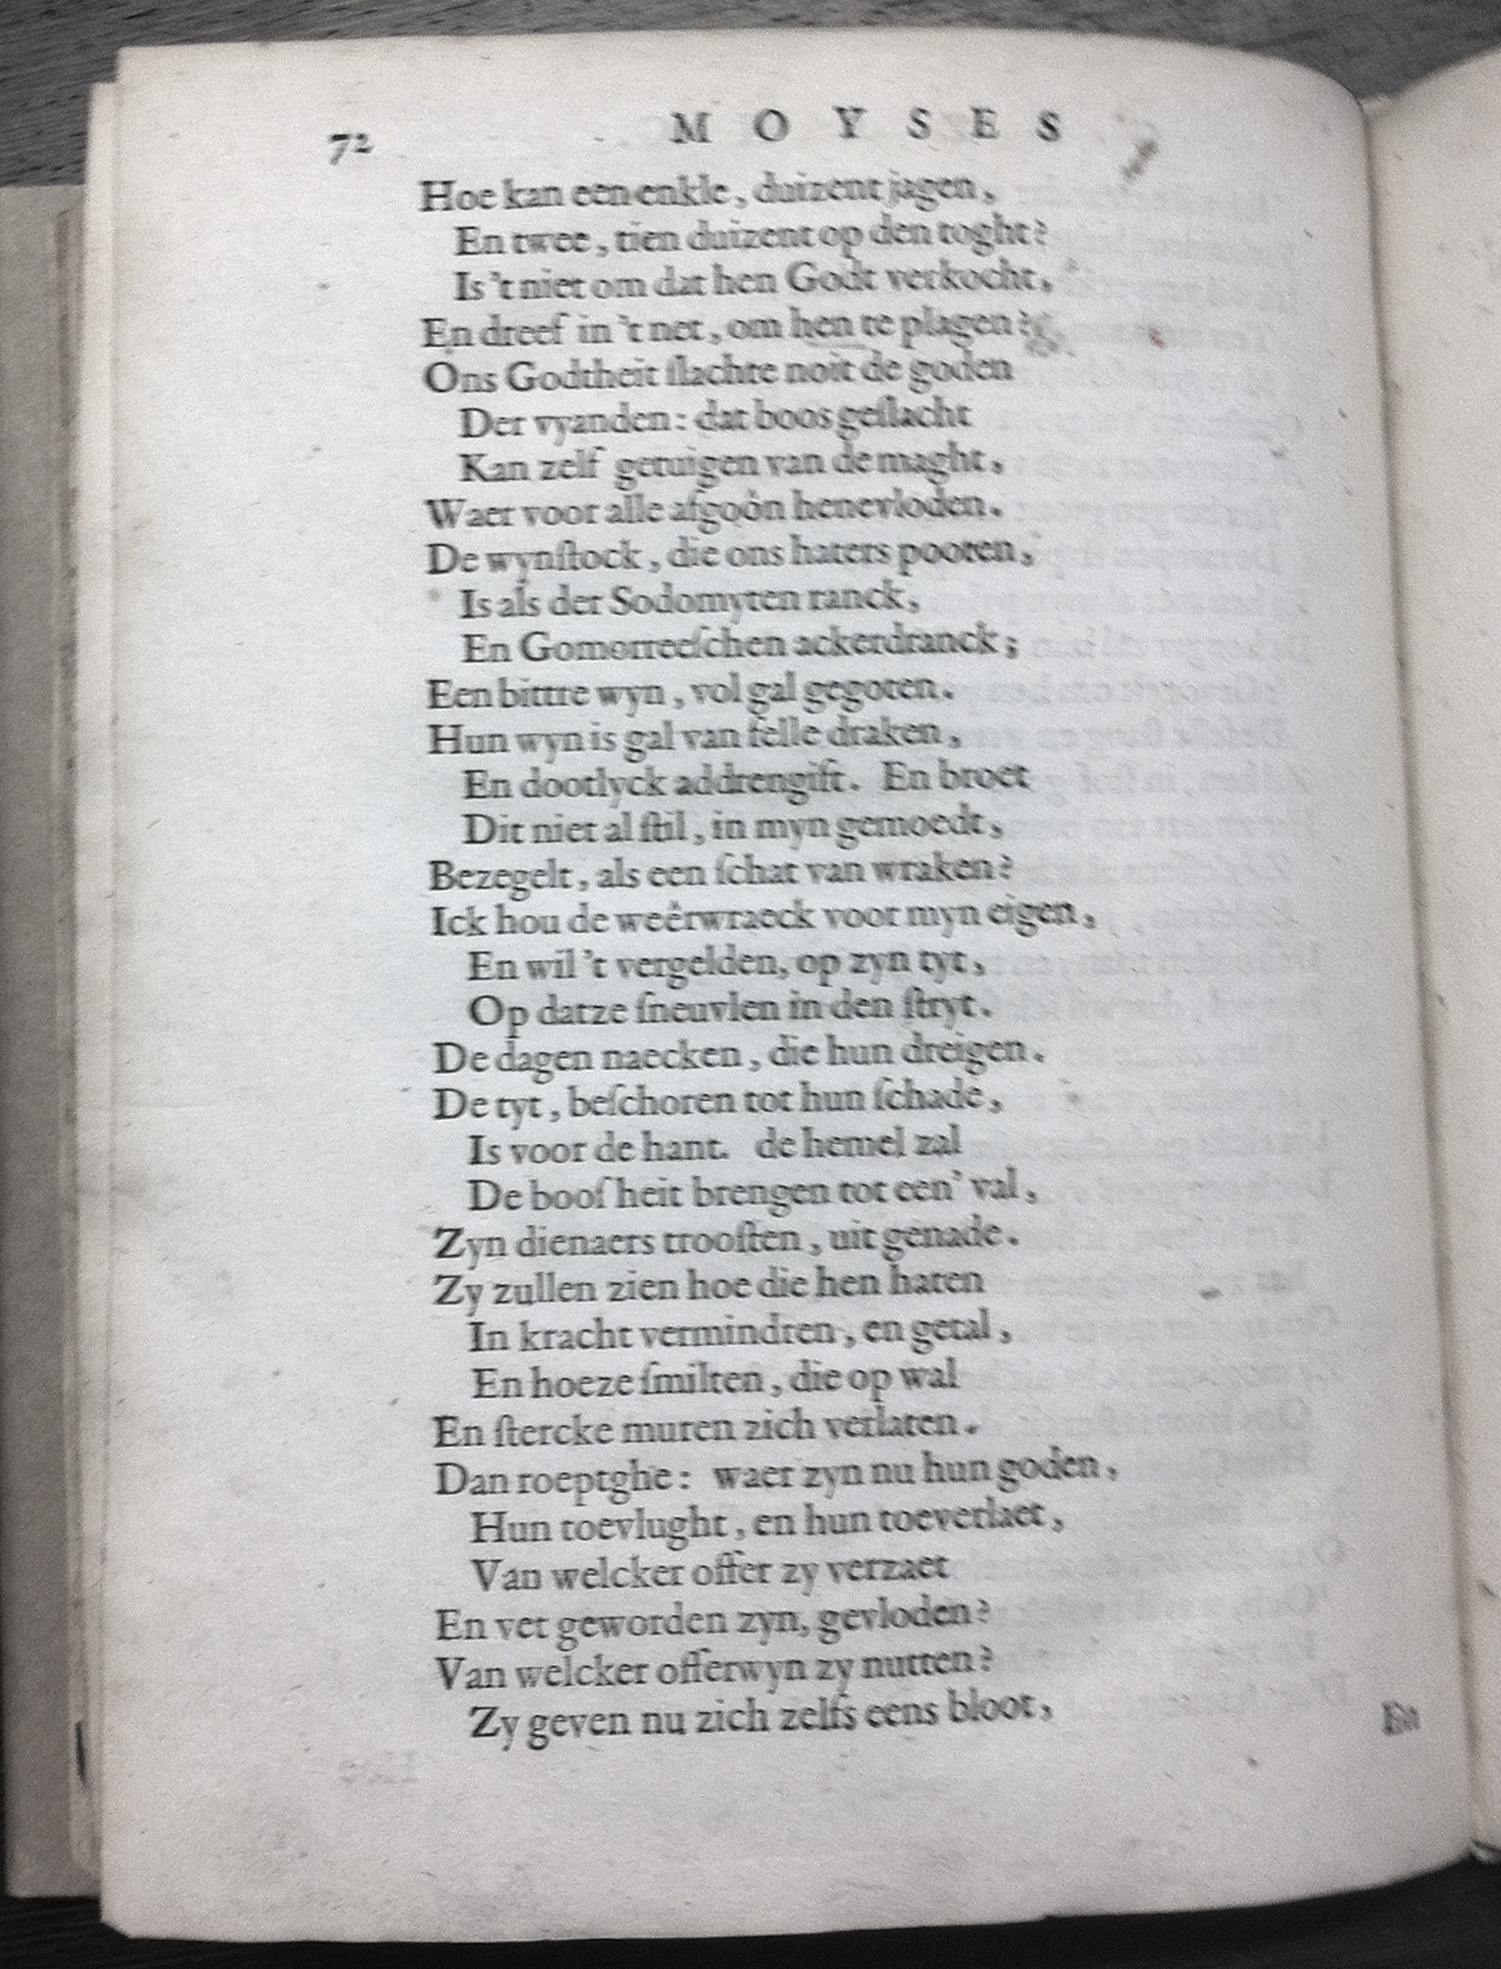 72 MOYSES
Hoe kan een enkle, duizent jagen,
En twee, tien duizent op den toght?
Is 't niet om dat hen Godt verkocht,
En dreef in 't net, om hen te plagen?
Ons Godtheit ſlachte noit de goden
Der vyanden: dat boos geſlacht
Kan zelf getuigen van de maght,
Waer voor alle afgoôn henevloden.
De wynſtock, die ons haters pooten,
Is als der Sodomyten ranck,
En Gomorreeſchen ackerdranck;
Een bittre wyn, vol gal gegoten.
Hun wyn is gal van felle draken,
En dootlyck addrengift. En broet
Dit niet al ſtil, in myn gemoedt,
Bezegelt, als een ſchat van wraken?
Ick hou de weêrwraeck voor myn eigen,
En wil 't vergelden, op zyn tyt,
Op datze ſneuvlen in den ſtryt.
De dagen naecken, die hun dreigen.
De tyt, beſchoren tot hun ſchade,
Is voor de hant. de hemel zal
De booſheit brengen tot een' val,
Zyn dienaers trooſten, uit genade.
Zy zullen zien hoe die hen haten
In kracht vermindren, en getal,
En hoeze ſmilten, die op wal
En ſtercke muren zich verlaten.
Dan roeptghe: waer zyn nu hun goden,
Hun toevlught, en hun toeverlaet,
Van welcker offer zy verzaet
En vet geworden zyn, gevloden?
Van welcker offerwyn zy nutten?
Zy geven nu zich zelfs eens bloot,
En